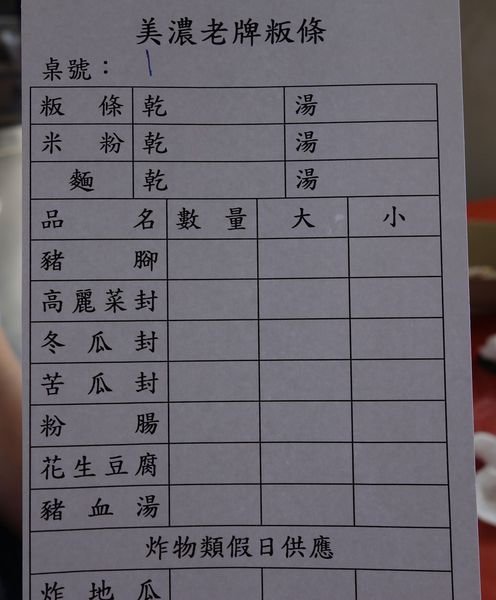 美濃老牌粄條
桌號： 1
粄條 乾 湯
米粉 乾 湯
麵 乾 湯
品名 數量 大 小
豬腳
高麗菜封
冬瓜封
苦瓜封
粉腸
花生豆腐
豬血湯
炸物類假日供應
炸地瓜